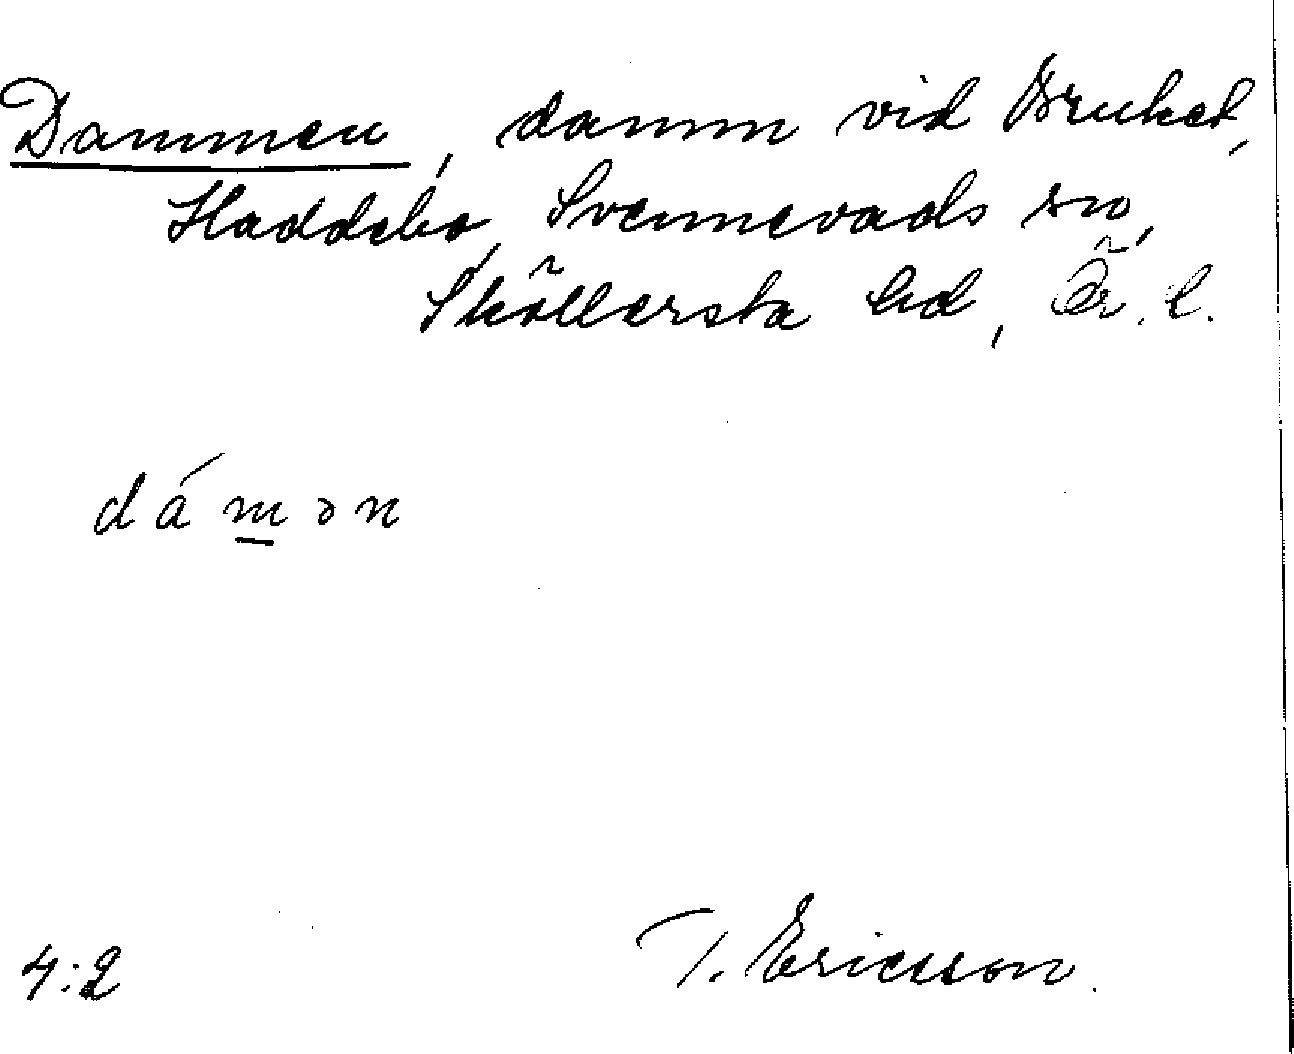 Dammen, damm vid Bruket,
Haddebo, Svennevads sn,
Sköllersta hd, Ör. l.
dámən
4:2
T. Ericsson.